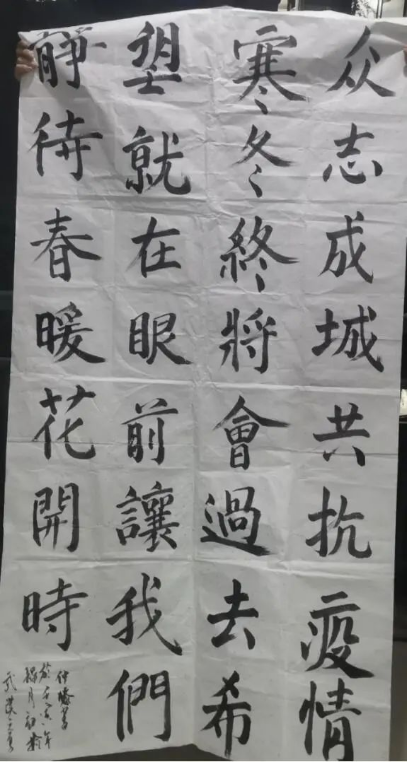 众志成城共抗疫情
寒冬终將會過去希
望就在眼前讓我們
靜待春暖花開時